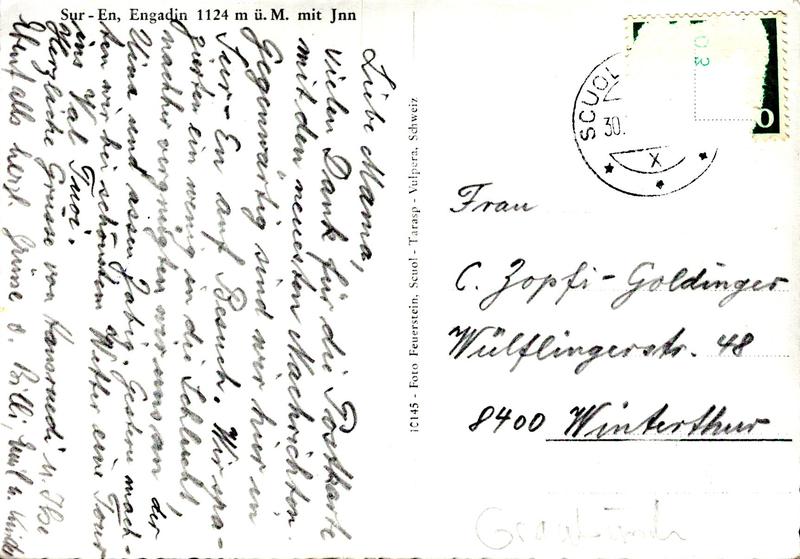 Sur-En, Engadin 1124 m ü. M. mit Jnn
Liebe Mama,
vielen Dank für die Postkarte
mit den neuesten Nachrichten.
Gegenwärtig sind wir hier in
Sur-En auf Besuch. Wir spa-
zierten ein wenig in die Schlucht,
nachher vergnügten wir uns an der
Uina und assen Zabig. Gestern mach-
ten wir bei schönstem Wetter eine Tour
ins Val Tuoi.
Herzliche Grüsse von Hansruedi u.
Ebenfalls herzl. Grüsse
10145 - Foto Feuerstein, Scuol - Tarasp - Vulpera, Schweiz
SCUOL
30.
X
Frau
C. Zopfi-Goldinger
Wülflingerstr. 48
8400 Winterthur
Graubünden